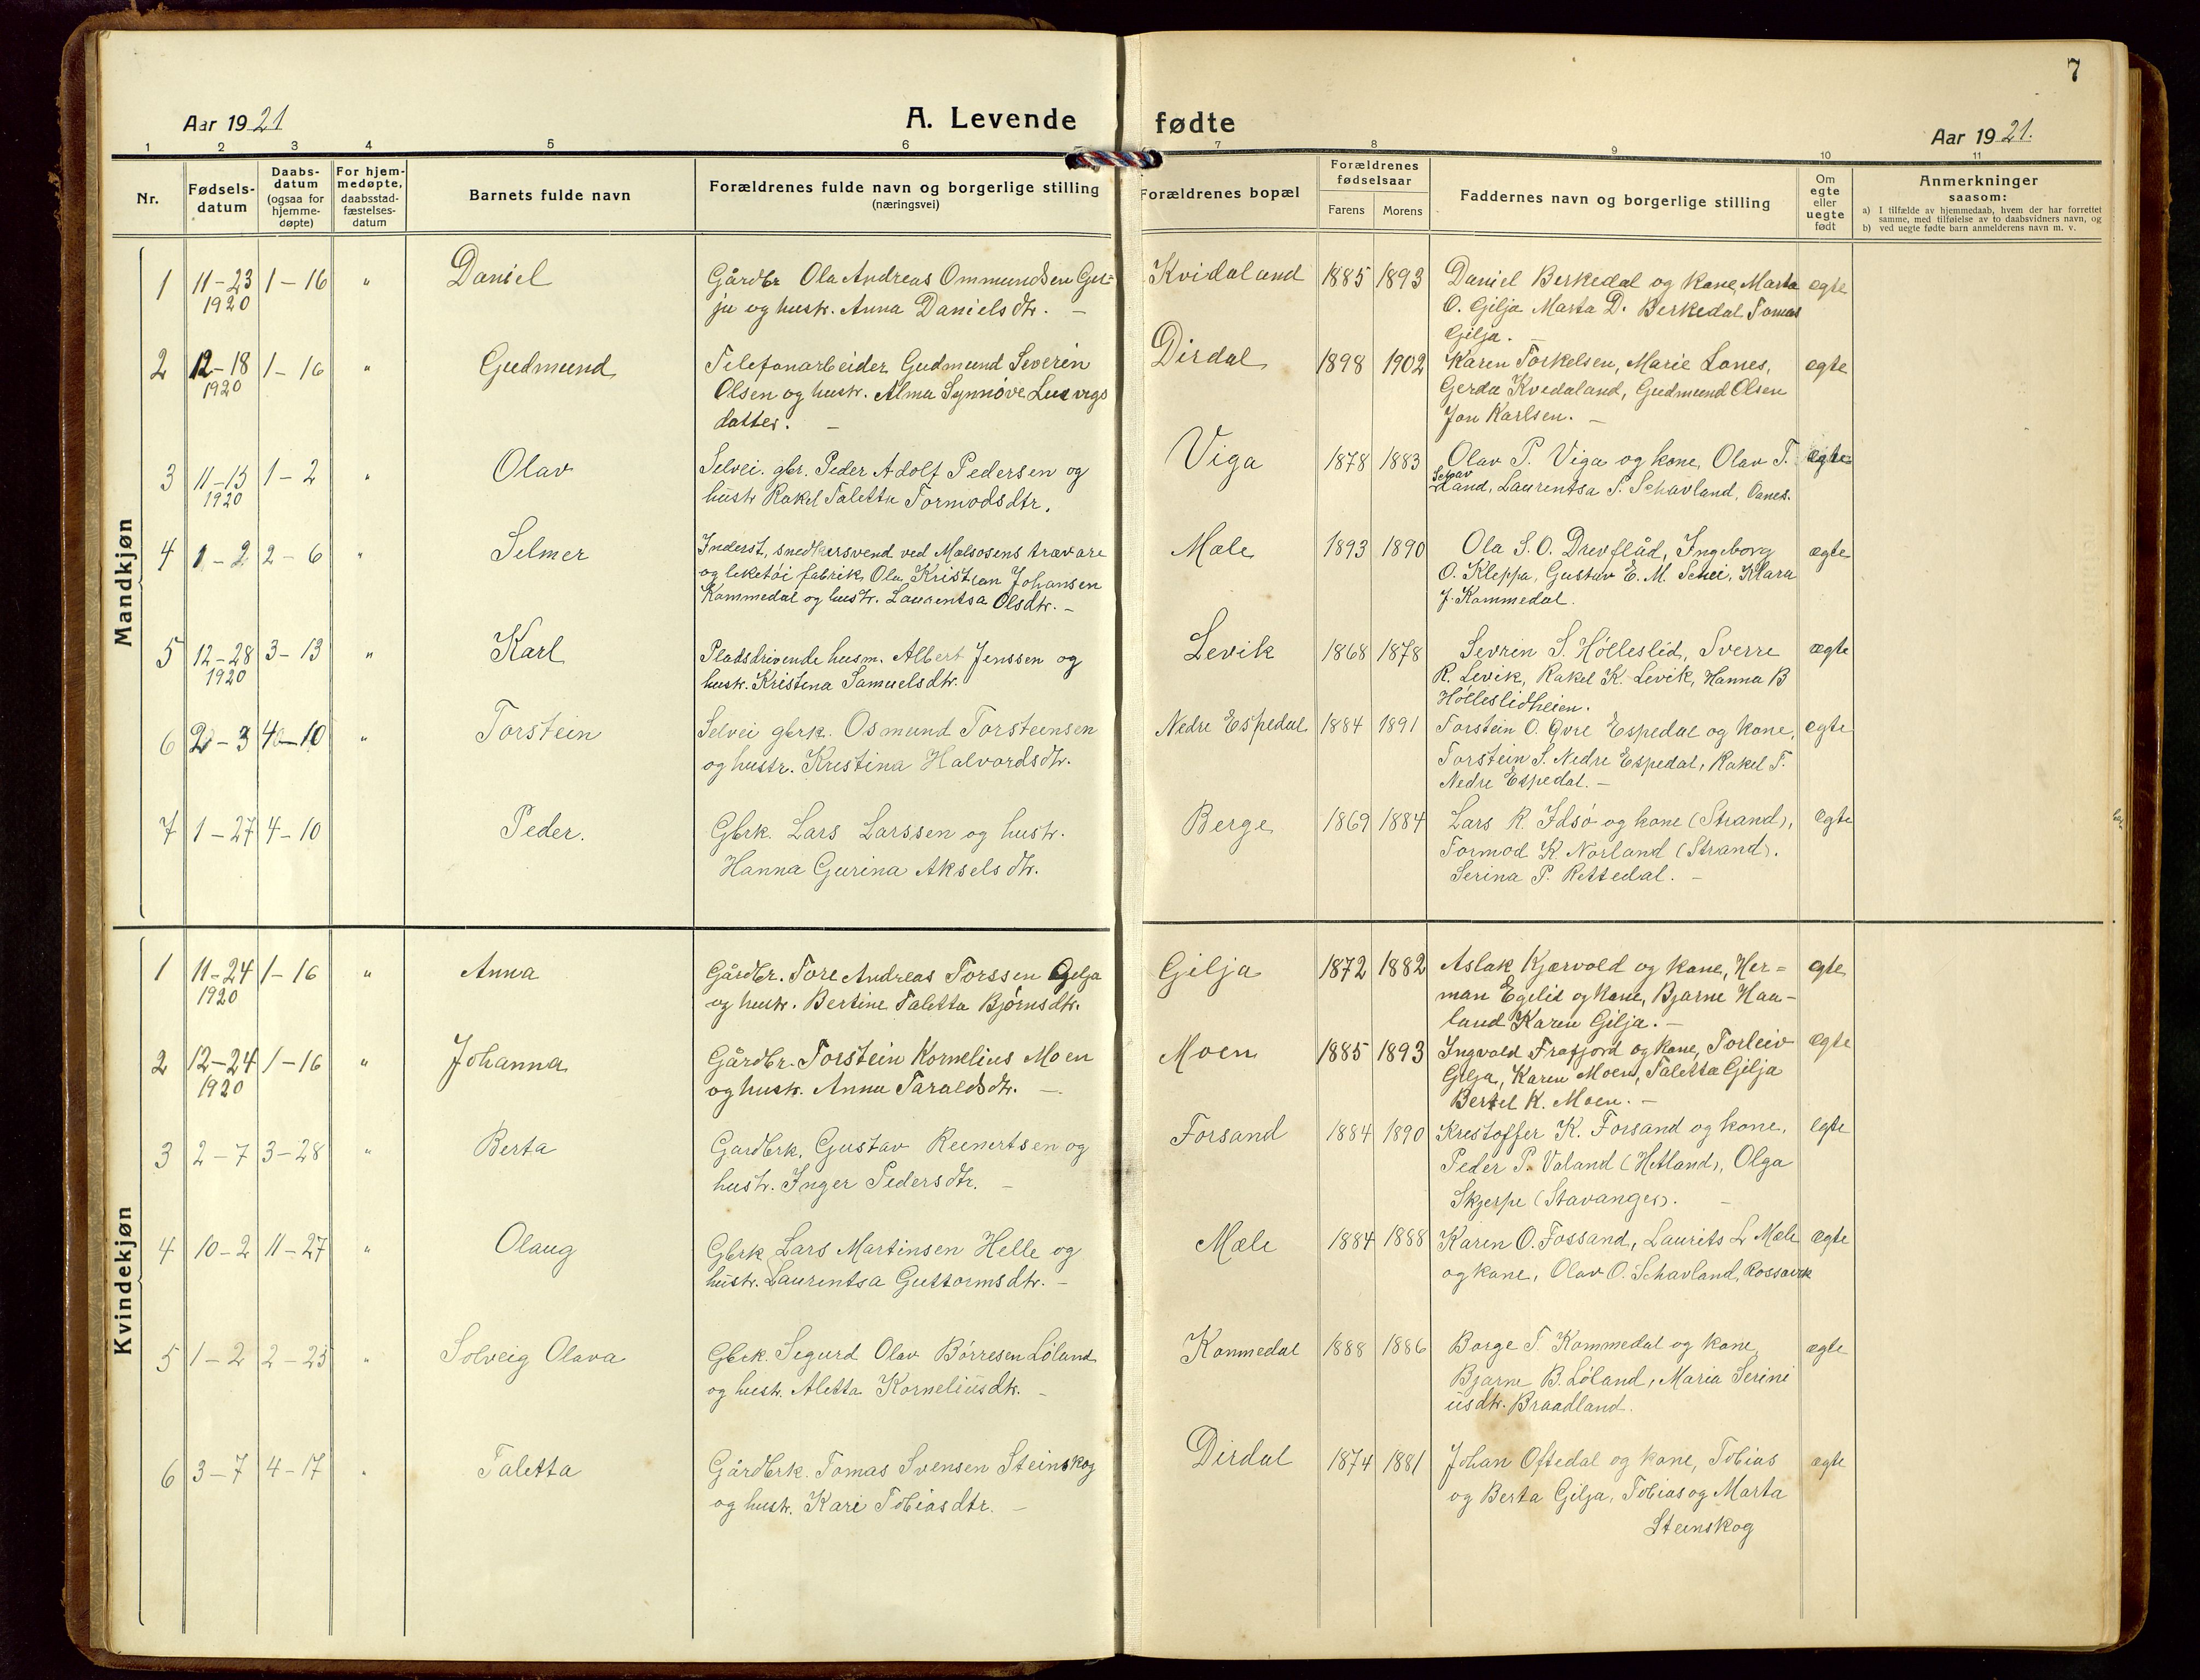 7
Aar 1921
A. Levende
fødte
Aar 1921.
1 2 3 4 5 6 7 8 9 10 11
Nr.
Fødsels-
datum
Daabs-
datum
(ogsaa for
hjemme-
døpte)
For hjem-
medøpte,
daabsstad-
fæstelses-
datum
Barnets fulde navn
Forældrenes fulde navn og borgerlige stilling
(næringsvei)
Forældrenes bopæl
Forældrenes
fødselsaar
Farens Morens
Faddernes navn og borgerlige stilling
Om
egte
eller
uegte
født
Anmerkninger
saasom:
a) I tilfælde av hjemmedaab, hvem der har forrettet
samme, med tilføielse av to daabsvidners navn, og
b) ved uegte fødte barn anmelderens navn m. v.
Mandkjøn
1 11-23 1-16 " Daniel Gårdbr Ola Andreas Ommundsen Gil= Kvidaland 1885 1893 Daniel Berkedal og kone, Marta ægte
1920 ja og hustr. Anna Danielsdtr. - O. Gilja Marta D. Berkedal Tomas
Gilja. -
2 12-18 1-16 " Gudmund Telefonarbeider Gudmund Severin Dirdal 1898 1902 Karen Torkelsen, Marie Lones, ægte
1920 Olsen og hustr. Alma Synnøve Luavigs Gerda Kvidaland, Gudmund Olsen
datter. - Jon Karlsen. -
3 11-13 1-2 " Olav Selvei. gbr. Peder Adolf Pedersen og Viga 1878 1883 Olav P. Viga og kone, Olav T. ægte
1920 hustr Rakel Taletta Tormodsdtr. Schav
land, Laurentsa S. Schavland, Oanes.
4 1-2 2-6 " Selmer Inderst, snedkersvend ved Molsosens trævare Mæle 1893 1890 Ola S. O. Drevflåd, Ingeborg ægte
og leketøi fabrik, Ola Kristian Johansen O. Kleppa, Gustav E. M. Schei, Klara
Kommedal og hustr. Laurentsa Olsdtr. - J. Kommedal.
5 12-28 3-13 " Karl Pladsdrivende husm. Albert Jenssen og Levik 1868 1878 Sevrin S. Hølleslid, Sverre ægte
1920 hustr. Kristina Samuelsdtr. R. Levik, Rakel K. Levik, Hanna B
Hølleslidheien.
6 2-3 4-10 " Torstein Selvei gbrk. Osmund Torsteinsen Nedre Espedal 1884 1891 Torstein O. Øvre Espedal og kone, ægte
og hustr. Kristina Halvordsdtr. Torstein S. Nedre Espedal, Rakel T.
Nedre Espedal. -
7 1-27 4-10 Peder. Gbrk. Lars Larssen og hustr. Berge 1869 1884 Lars R. Idsø og kone (Strand), ægte
Hanna Gurina Akselsdtr. Tormod K. Norland (Strand).
Serina P. Rettedal. -
Kvindekjøn
1 11-24 1-16 " Anna Gårdbr. Tore Andreas Torssen Gilja Gilja 1872 1882 Aslak Kjærvold og kone, Her= ægte
1920 og hustr. Bertine Taletta Bjørnsdtr. man Egelid og kone, Bjarne Haa-
land Karen Gilja. -
2 12-24 1-16 " Johanna Gårdbr. Torstein Kornelius Moen Moen 1885 1893 Ingvald Frafjord og kone, Torleiv ægte
1920 og hustr. Anna Taraldsdtr. - Gilja, Karen Moen, Taletta Gilja
Bertel K. Moen. -
3 2-7 3-28 " Berta Gardbrk. Gustav Reenertsen og Forsand 1884 1890 Kristoffer K. Forsand og kone, egte
hustr. Inger Pedersdtr. - Peder P. Valand (Hetland), Olga
Skjerpe (Stavanger). -
4 10-2 11-27 " Olaug Gbrk Lars Martinsen Helle og Mæle 1884 1888 Karen O. Fossand, Laurits L Mæle ægte
hustr. Laurentsa Guttormsdtr. - og kone, Olav O. Schavland, Rossavik
5 1-2 2-25 " Solveig Olava Gbrk. Sigurd Olav Børresen Løland Kommedal 1888 1886 Borge T. Kommedal og kone ægte
og hustr. Aletta Korneliusdtr. - Bjarne B. Løland, Maria Serini
usdtr. Braadland.
6 3-7 4-17 " Taletta Gårdbrk. Tomas Svensen Steinskog Dirdal 1874 1881 Johan Oftedal og kone, Tobias ægte
og hustr. Kari Tobiasdtr. - og Berta Gilja, Tobias og Marta
Steinskog